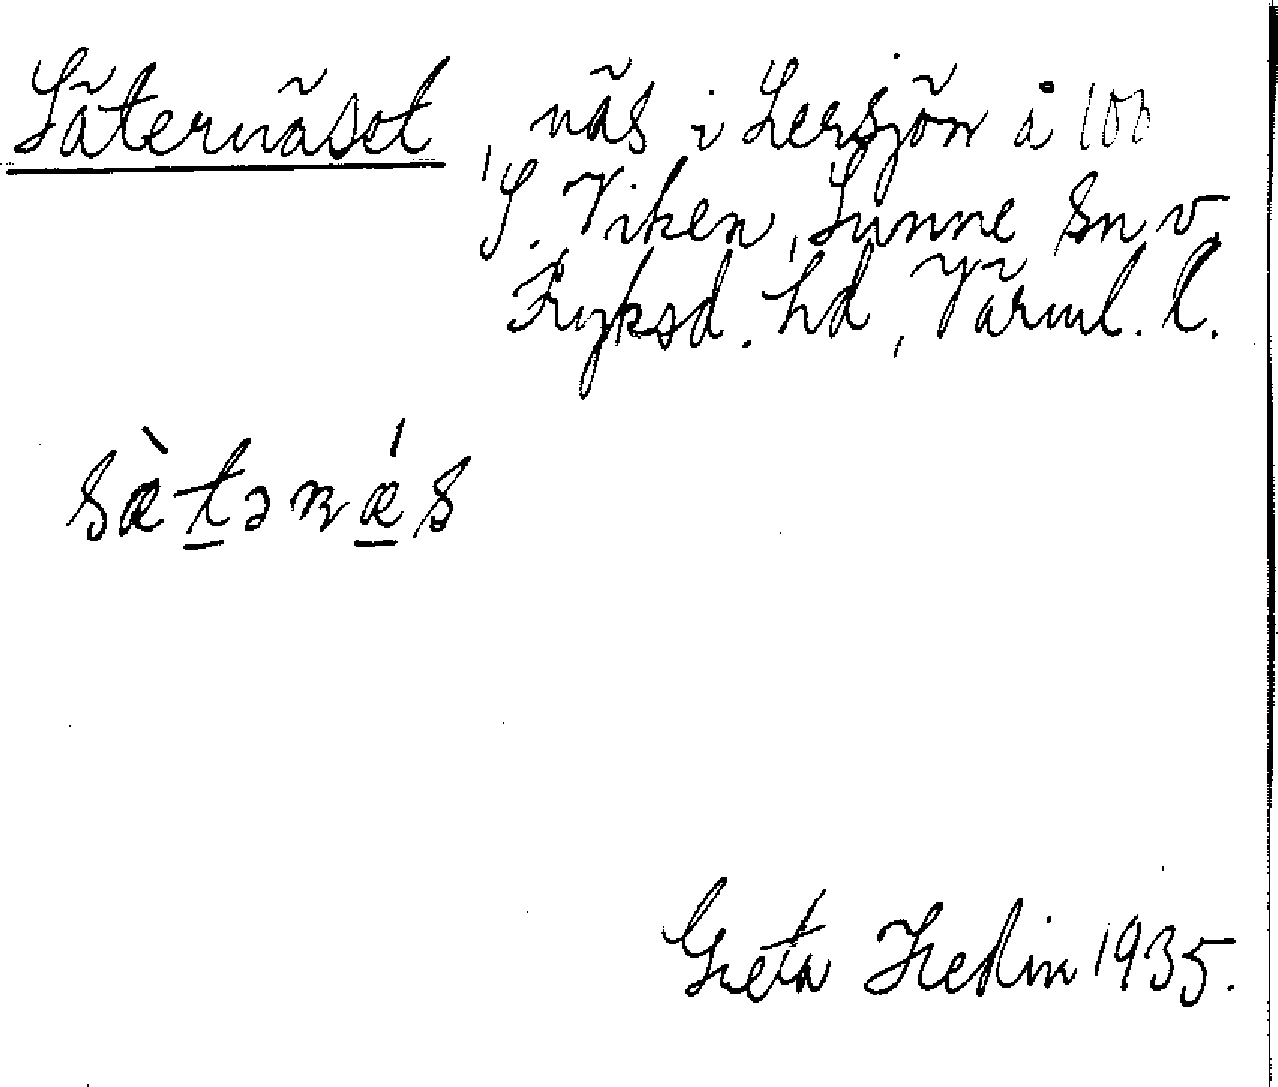 Säternäset, näs i Lersjön å 100
S. Viken, Sunne sn v.
Fryksd. hd, Värml. l.
sæ̀tənǽs
Greta Hedin 1935.